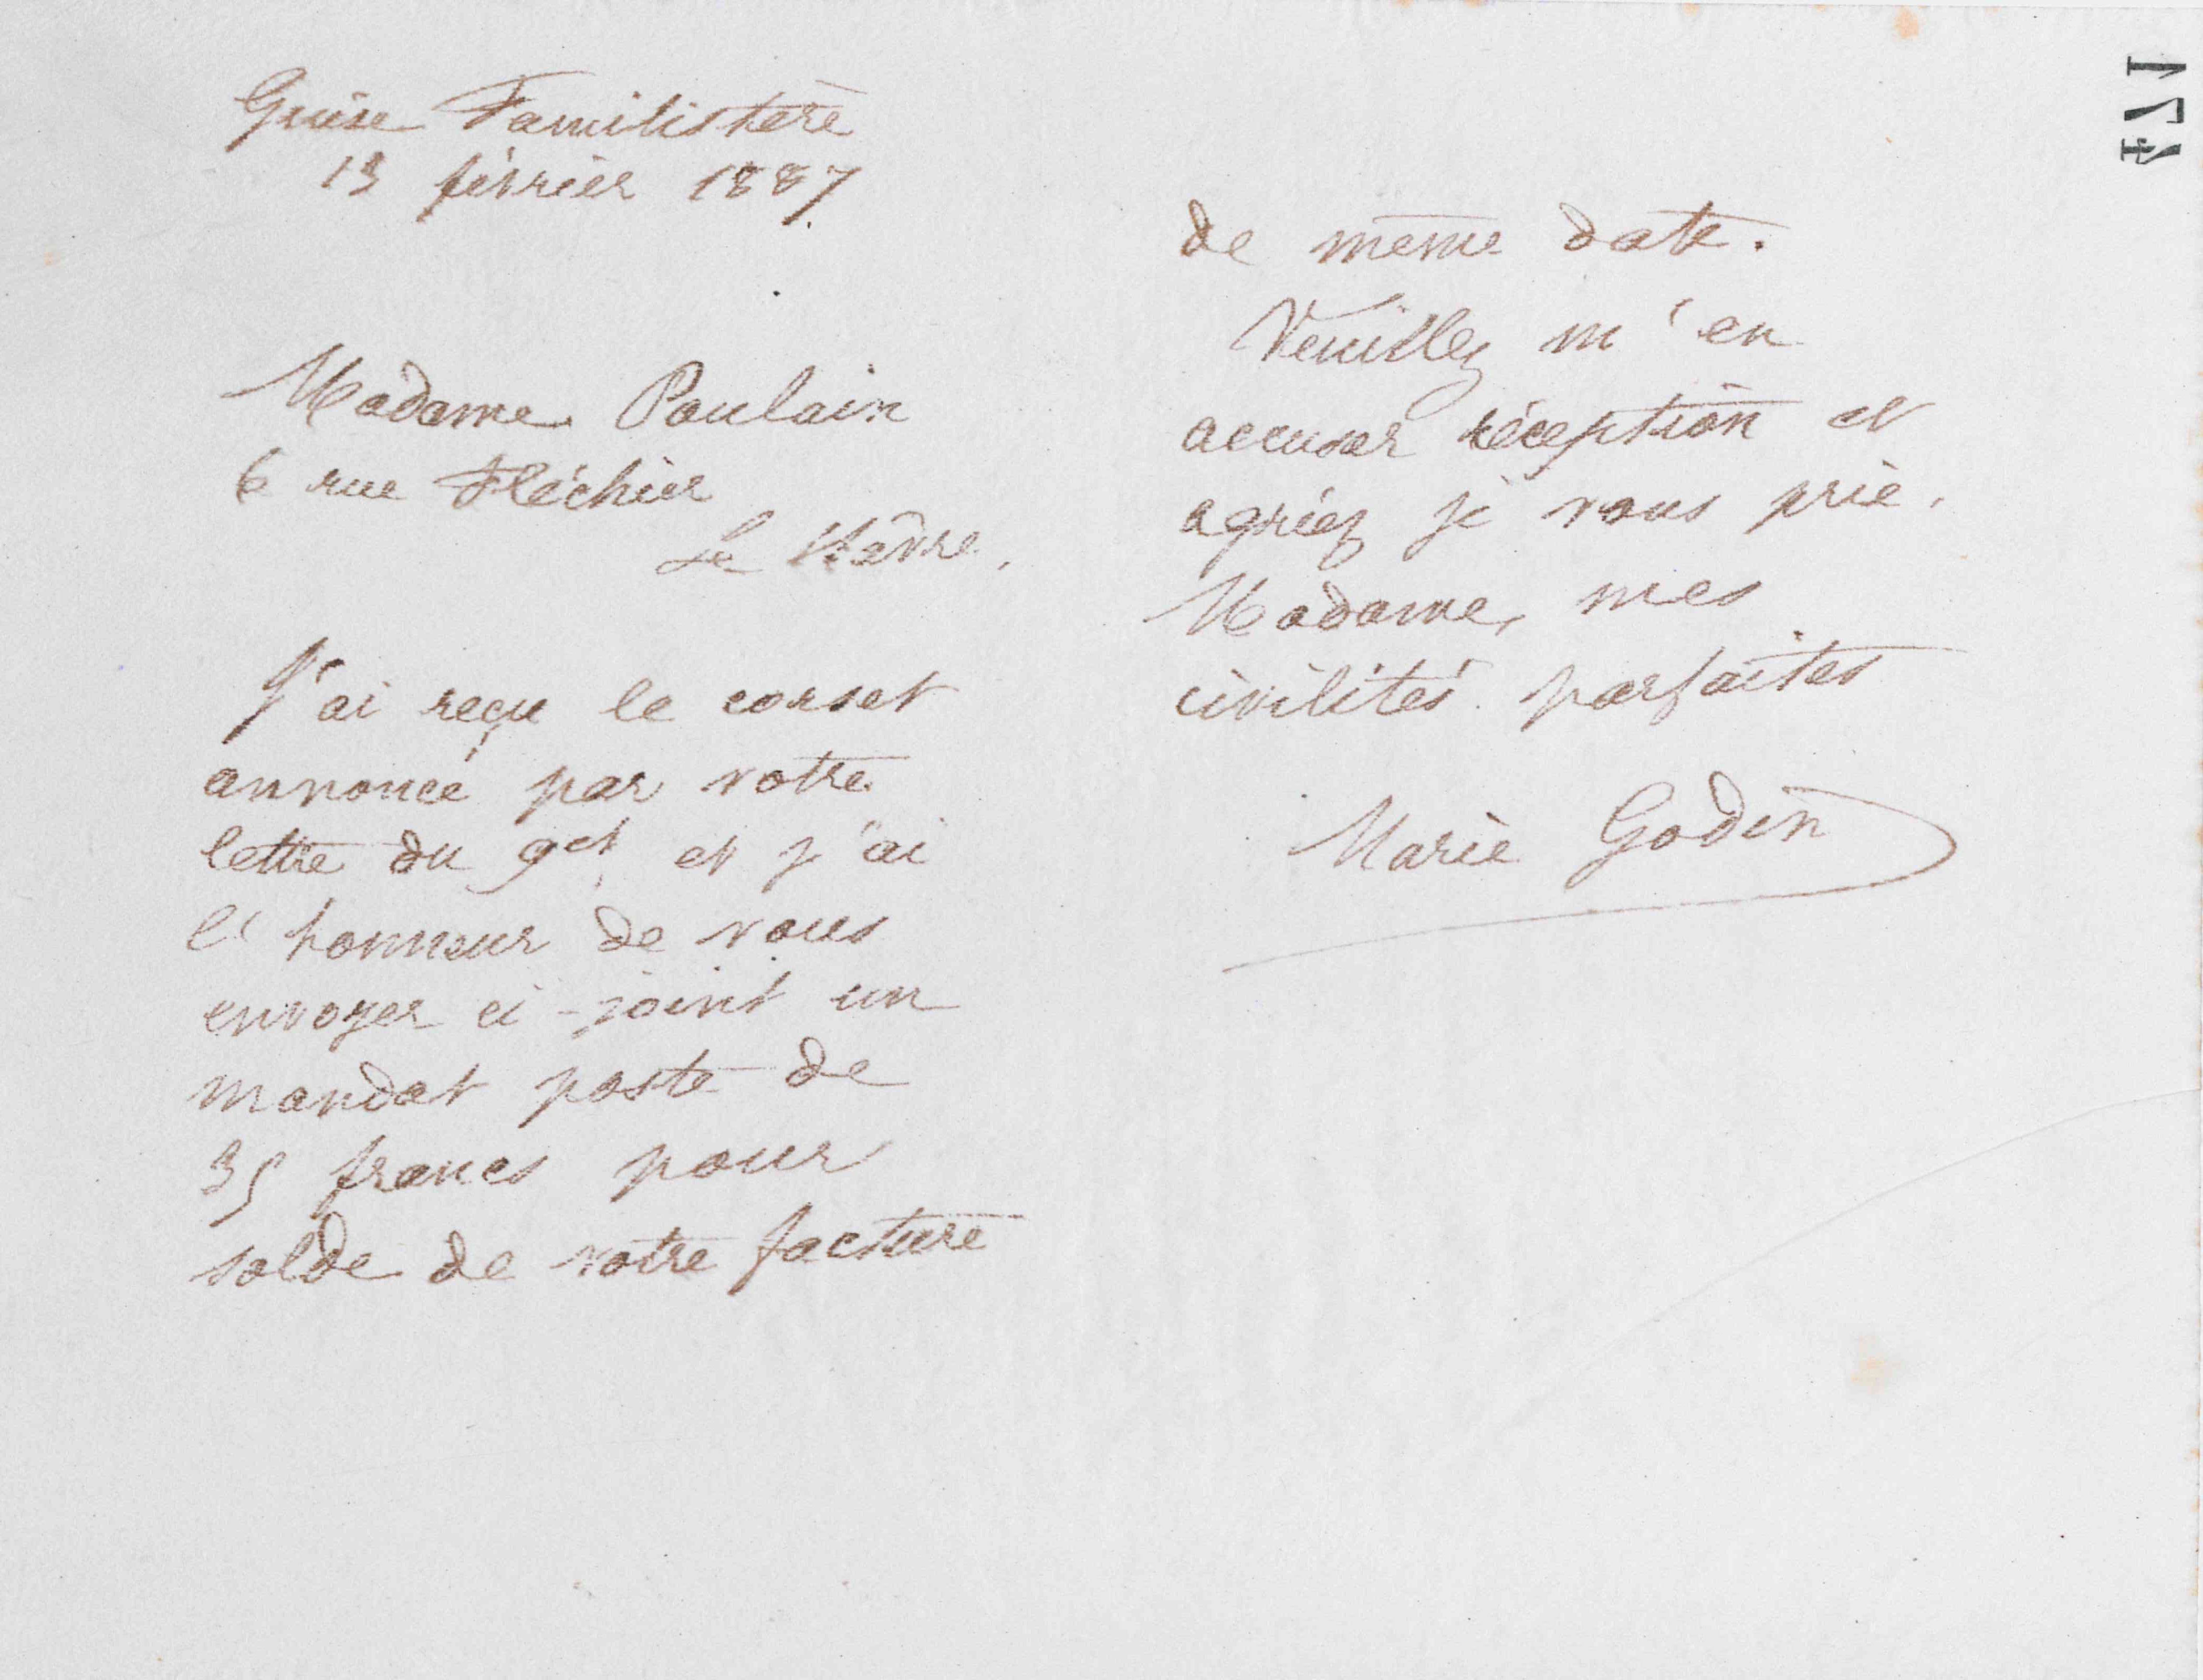 Guise Familistère
13 février 1887
Madame Poulain
6 rue Fléchier
Le Hâvre.
J'ai reçu le corset
annoncé par votre
lettre du 9 ct et j'ai
l'honneur de vous
envoyer ci-joint un
mandat poste de
35 francs pour
solde de votre facture
de même date.
Veuillez m'en
accuser réception et
agréez je vous prie,
Madame, mes
civilités parfaites
Marie Godin